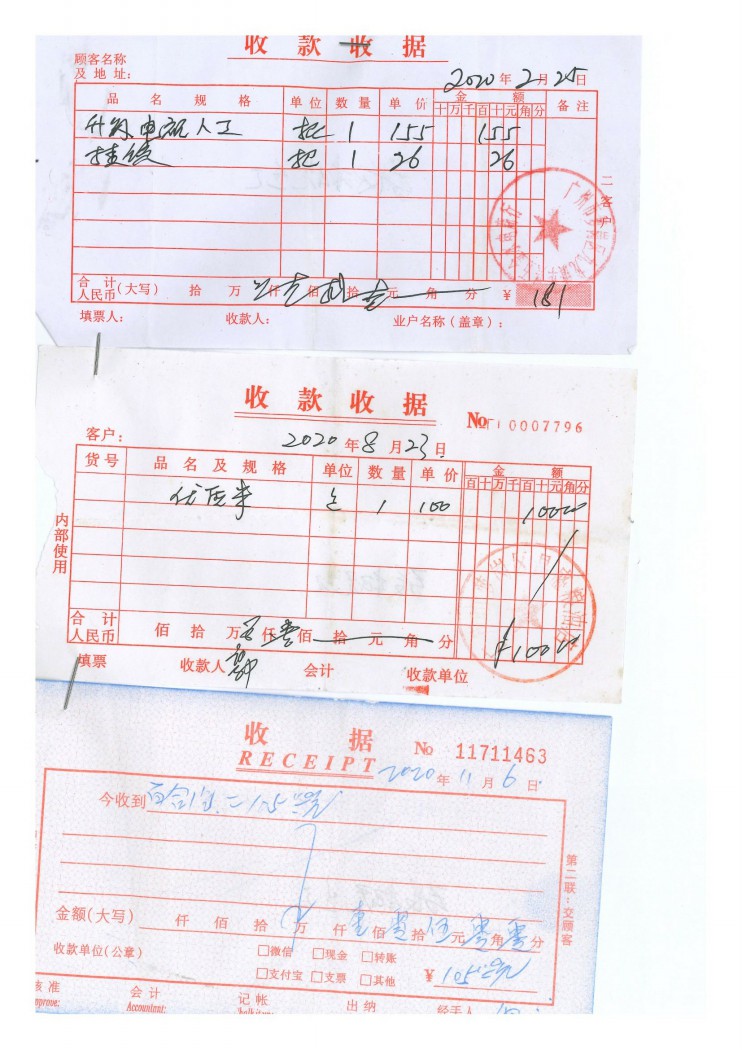 收款收据
顾客名称
及地址：
2020年2月25日
品名规格 单位 数量 单价 金额 备注
十万千百十元角分
人工 把 1 155 155
把 1 26 26
二客户
合计
人民币（大写） 拾 万 仟 佰 拾 元 角 分 ￥ 181
填票人： 收款人： 业户名称（盖章）：
收款收据
No 0007796
客户：
2020年8月23日
货号 品名及规格 单位 数量 单价 金额
百十万千百十元角分
1 100 10000
内部使用
合计
人民币 佰 拾 万 仟 佰 拾 元 角 分 ￥10000
填票 收款人 会计 收款单位
收据
RECEIPT
No 11711463
2020年11月6日
今收到
第二联：交顾客
金额（大写） 仟 佰 拾 万 仟 壹佰 零拾 伍元 零角 零分
收款单位（公章） □微信 □现金 □转账
□支付宝 □支票 □其他 ￥105
核准 会计 记帐 出纳 经手人
Accountant: